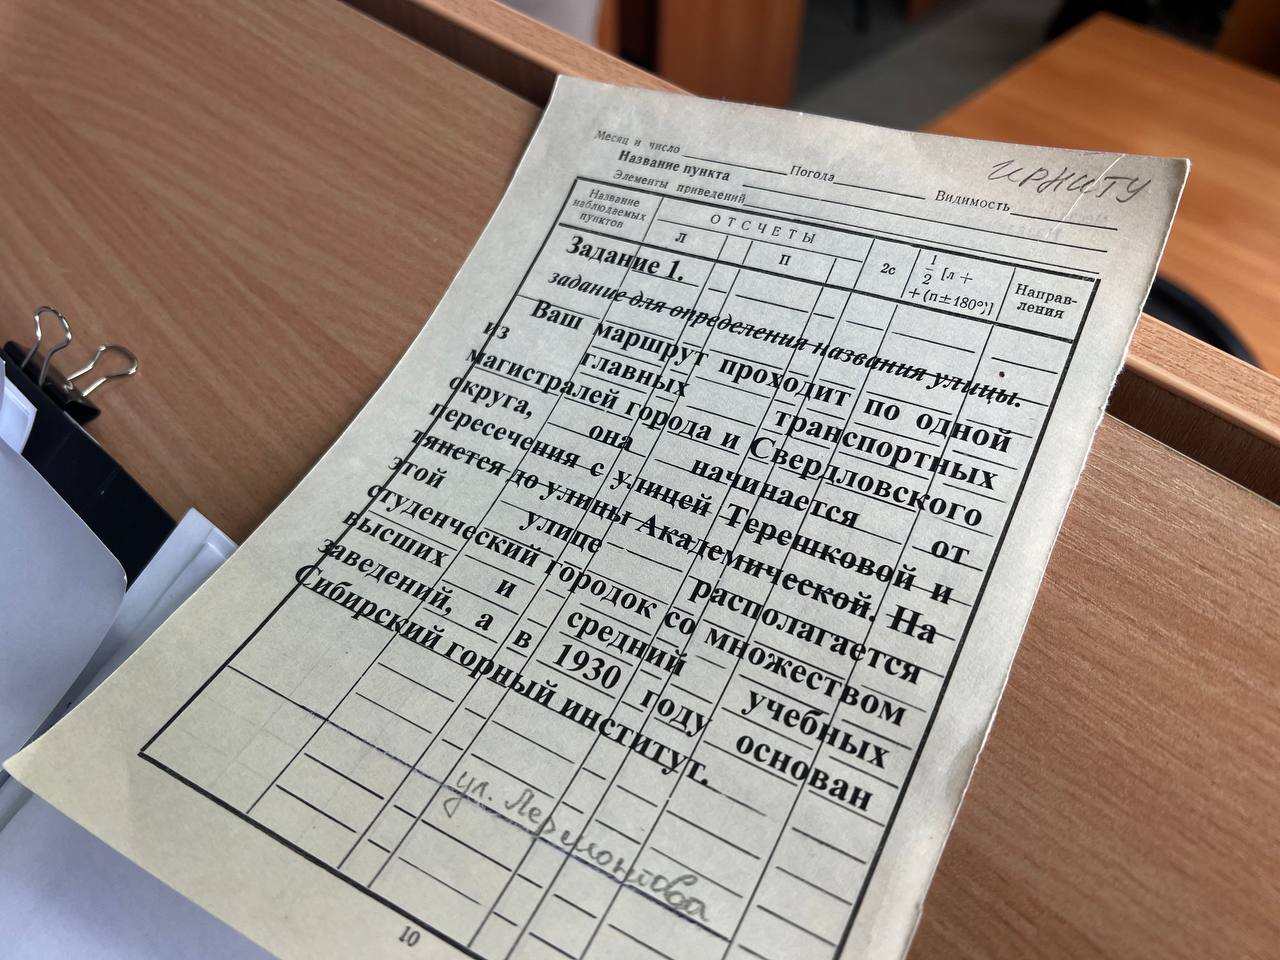 ИРНИТУ
Месяц и число Погода Видимость
Название пункта
Элементы приведений
Название наблюдаемых пунктов
ОТСЧЕТЫ
Л П
2c
1/2 [л + + (п±180°)]
Направления
Задание 1.
задание для определения названия улицы.
Ваш маршрут проходит по одной
из главных транспортных
магистралей города и Свердловского
округа, она начинается от
пересечения с улицей Терешковой и
тянется до улицы Академической. На
этой улице располагается
студенческий городок со множеством
высших и средний учебных
заведений, а в 1930 году основан
Сибирский горный институт.
ул. Лермонтова
10